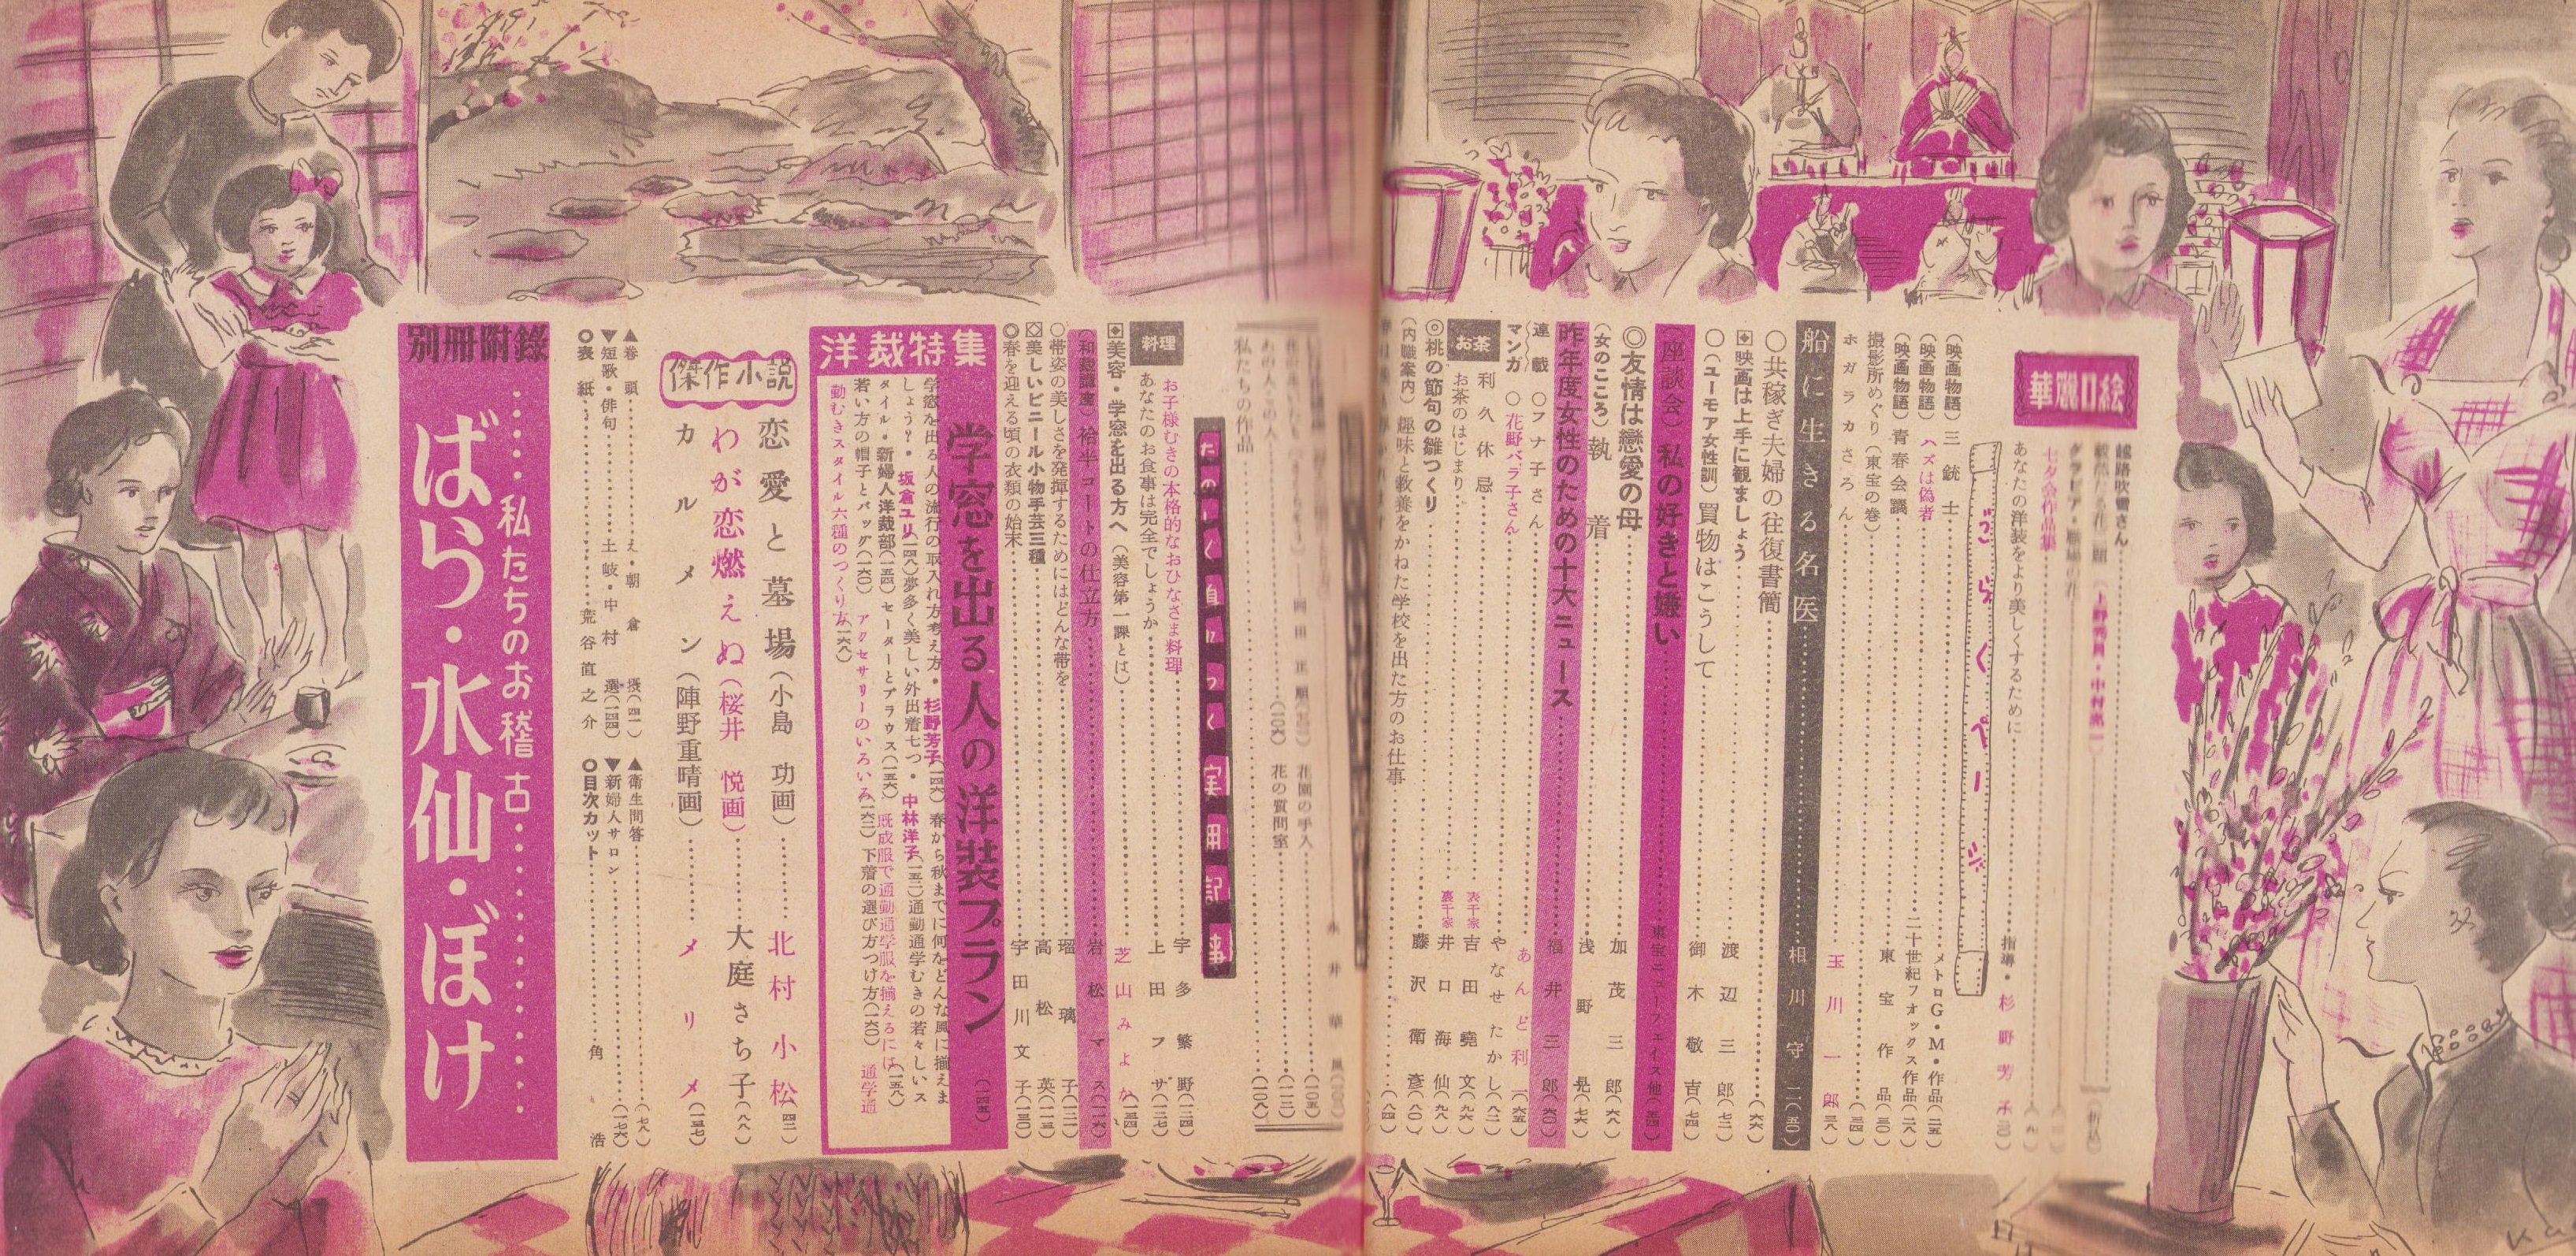 華麗口絵
越路吹雪さん
七夕会作品集
あなたの洋装をより美しくするために……指導・杉野芳子
ごらくページ
(映画物語) 三銃士……メトロG・M・作品(二五)
(映画物語) ハズは偽者……二十世紀フォックス作品(二八)
(映画物語) 青春会議……東宝作品(三〇)
撮影所めぐり (東宝の巻)……(三四)
ホガラカさろん……玉川一郎(三八)
船に生きる名医……相川守二(五〇)
○共稼ぎ夫婦の往復書簡……(六六)
映画は上手に観ましょう……渡辺三郎(七三)
○(ユーモア女性訓) 買物はこうして……御木敬吉(七四)
(座談会) 私の好きと嫌い……東宝ニューフェイス他(五四)
◎友情は戀愛の母……加茂三郎(六八)
(女のこころ) 執着……浅野晃(七六)
昨年度女性のための十大ニュース……福井三郎(六〇)
連載マンガ
○フナ子さん……あんど利一(六五)
○花野バラ子さん……やなせたかし(八二)
お茶
利久休忌……表千家 吉田堯文(九六)
お茶のはじまり……裏千家 井口海仙(九八)
◎桃の節句の雛つくり……藤沢衛彦(八〇)
(内職案内) 趣味と教養をかねた学校を出た方のお仕事……(八四)
花園の手入
花の質問室
私たちの作品……(一〇八)
たのしく身につく実用記事
料理
お子様むきの本格的なおひなさま料理……宇多繁野(一二四)
あなたのお食事は完全でしょうか……上田フサ(一二七)
美容・学窓を出る方へ (美容第一課とは)……芝山みよか(一三四)
(和裁講座) 袷半コートの仕立方……岩松マス(一一六)
○帯姿の美しさを発揮するためにはどんな帯を……瑠璃子(一二一)
◇美しいビニール小物手芸三種……高松英子(一一三)
◎春を迎える頃の衣類の始末……宇田川文子(一三〇)
洋裁特集
学窓を出る人の洋裝プラン……(一四五)
学窓を出る人の流行の取入れ方考え方・杉野芳子(一四六) 春から秋までに何をどんな風に揃えま
しょう?・坂倉ユリ(一四八) 夢多く美しい外出着七つ・中林洋子(一五二) 通勤通学むきの若々しいス
タイル・新婦人洋裁部(一五四) セーターとブラウス(一五六) 既成服で通勤通学服を揃えるには(一五八)
若い方の帽子とバッグ(一六〇) アクセサリーのいろいろ(一六二) 下着の選び方つけ方(一六〇) 通学通
勤むきスタイル六種のつくり方(一六八)
傑作小説
恋愛と墓場 (小島功画)……北村小松(四二)
わが恋燃えぬ (桜井悦画)……大庭さち子(八八)
カルメン (陣野重晴画)……メリメ(一三七)
▲巻頭……え・朝倉摂(四一)
▲衛生問答……(七八)
▼短歌・俳句……土岐・中村選(一四四)
▼新婦人サロン……(一七六)
○表紙……荒谷直之介
○目次カット……角浩
別冊附錄
……私たちのお稽古……
ばら・水仙・ぼけ